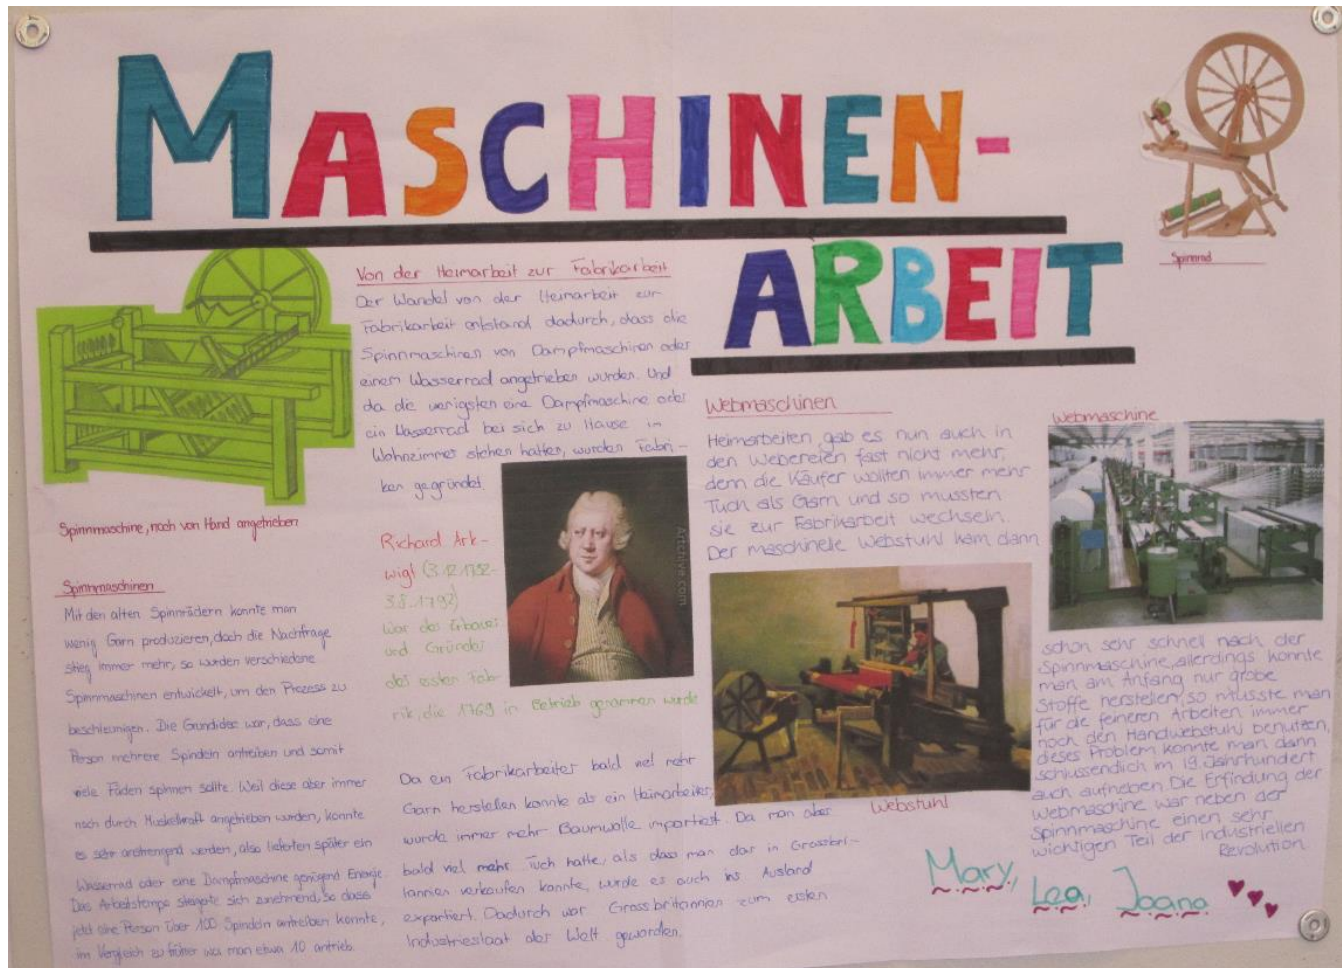 MASCHINEN-
ARBEIT
Spinnrad
Spinnmaschine, noch von Hand angetrieben
Spinnmaschinen
Mit den alten Spinnrädern konnte man
wenig Garn produzieren, doch die Nachfrage
stieg immer mehr, so wurden verschiedene
Spinnmaschinen entwickelt, um den Prozess zu
beschleunigen. Die Grundidee war, dass eine
Person mehrere Spindeln antreiben und somit
viele Fäden spinnen sollte. Weil diese aber immer
noch durch Muskelkraft angetrieben wurden, konnte
es sehr anstrengend werden, also lieferten später ein
Wasserrad oder eine Dampfmaschine genügend Energie.
Das Arbeitstempo steigerte sich zunehmend, so dass
jetzt eine Person über 100 Spindeln antreiben konnte,
im Vergleich zu früher wo man etwa 10 antrieb.
Von der Heimarbeit zur Fabrikarbeit
Der Wandel von der Heimarbeit zur
Fabrikarbeit entstand dadurch, dass die
Spinnmaschinen von Dampfmaschinen oder
einem Wasserrad angetrieben wurden. Und
da die wenigsten eine Dampfmaschine oder
ein Wasserrad bei sich zu Hause im
Wohnzimmer stehen hatten, wurden Fabri-
ken gegründet.
Richard Ark-
wigt (3.12.1732-
3.8.1792)
war der Erbauer
und Gründer
der ersten Fab-
rik, die 1769 in Betrieb genommen wurde
Artchive.com
Da ein Fabrikarbeiter bald viel mehr
Garn herstellen konnte als ein Heimarbeiter,
wurde immer mehr Baumwolle importiert. Da man aber
bald viel mehr Tuch hatte, als dass man dar in Grossbri-
tannien verkaufen konnte, wurde es auch ins Ausland
exportiert. Dadurch war Grossbritannien zum ersten
Industriestaat der Welt geworden.
Webmaschinen
Heimarbeiten gab es nun auch in
den Webereien fast nicht mehr,
denn die Käufer wollten immer mehr
Tuch als Garn und so mussten
sie zur Fabrikarbeit wechseln.
Der maschinelle Webstuhl kam dann
Webstuhl
Webmaschine
schon sehr schnell nach der
Spinnmaschine, allerdings konnte
man am Anfang nur grobe
Stoffe herstellen, so müsste man
für die feineren Arbeiten immer
noch den Handwebstuhl benutzen,
dieses Problem konnte man dann
schlussendlich im 19. Jahrhundert
auch aufheben. Die Erfindung der
Webmaschine war neben der
Spinnmaschine einen sehr
wichtigen Teil der industriellen
Revolution
Mary, Lea, Joana